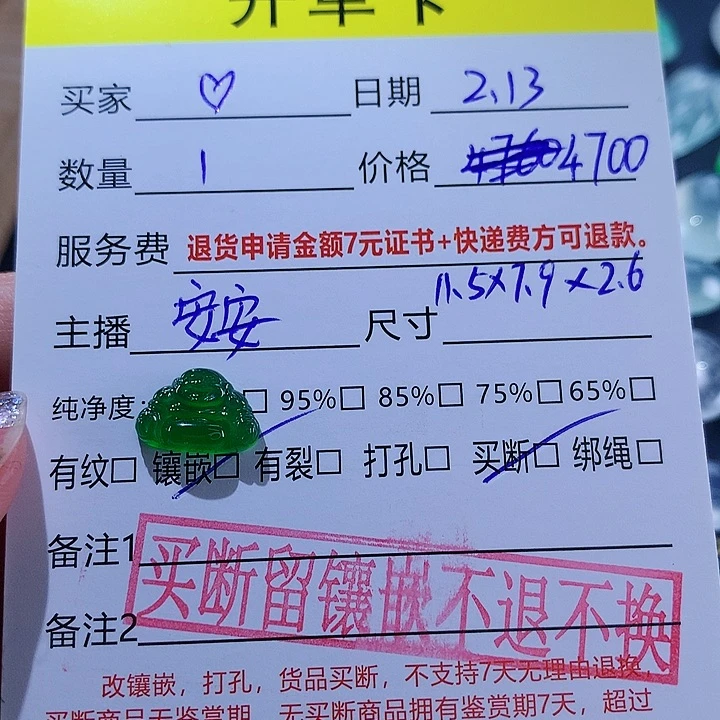 开单卡
买家 ♡ 日期 2.13
数量 1 价格 4700
服务费 退货申请金额7元证书+快递费方可退款。
主播 安安 尺寸 11.5×7.9×2.6
纯净度: □ 95%□ 85%□ 75%□ 65%□
有纹□ 镶嵌□ 有裂□ 打孔□ 买断□ 绑绳□
备注1
买断留镶嵌不退不换
备注2
改镶嵌，打孔，货品买断，不支持7天无理由退换，
买断商品无鉴赏期，无买断商品拥有鉴赏期7天，超过